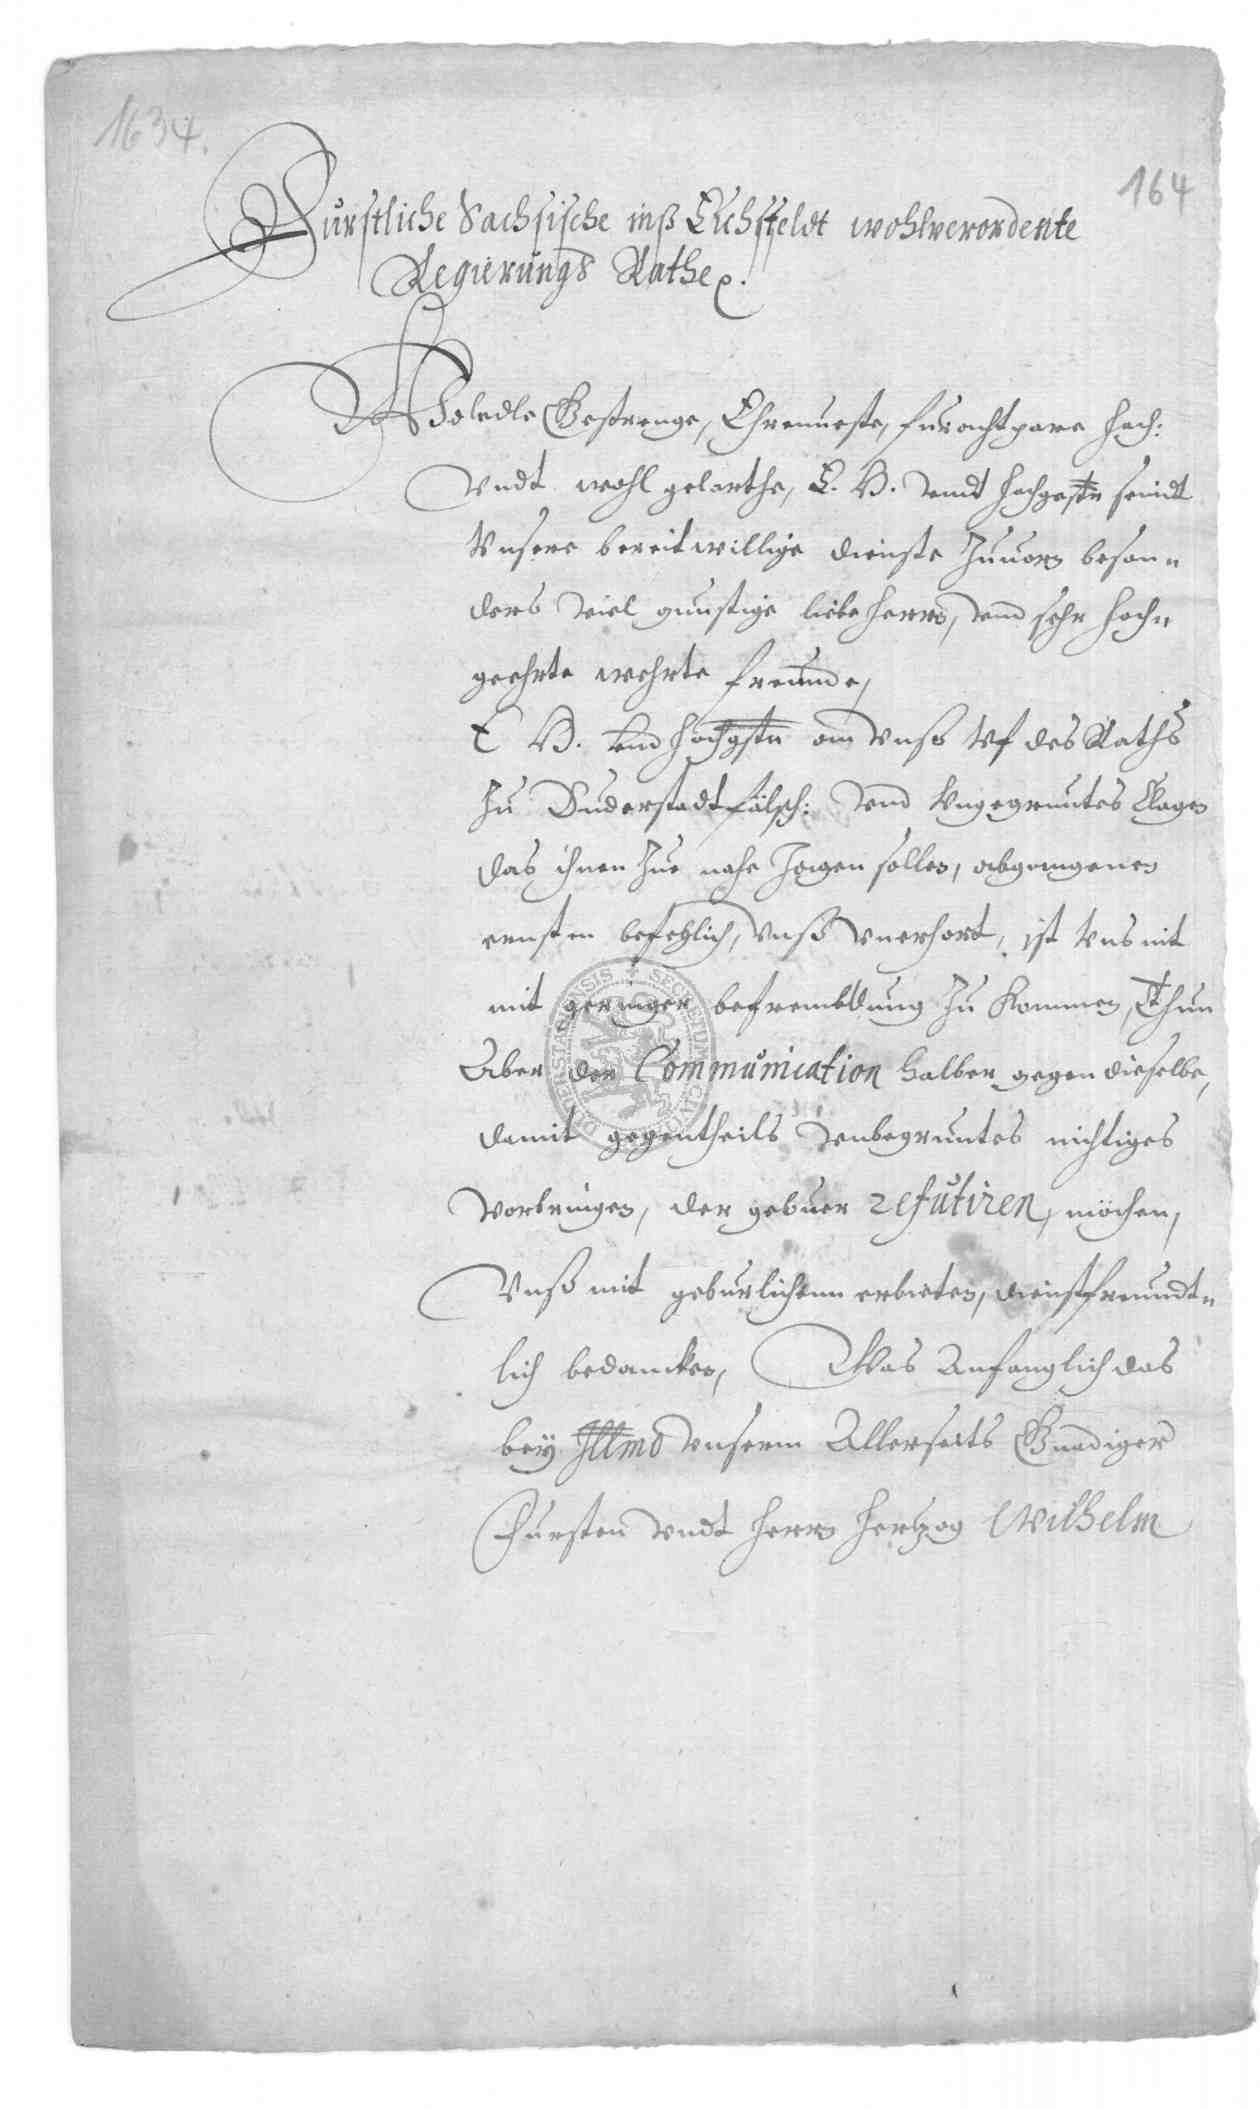 1634.
164
Furstliche Sachsische inß Eichsfeldt wohlverordente
Regierungs Rathe
Woledle Gestrenge, Ehrnueste, furachtpare hoch:
Vndt wohl gelarthe, E. G. vndt hochgstn seindt
Vnsere bereitwillige dienste Zuuorn beson„
ders viel gunstige liebe herrn, vnd sehr hoch„
geehrte wehrte freunde,
E G. vnd hochgstn an vnß Vf des Raths
Zu Duderstadt fälsch: vnd Vngegruntes Clagen
das ihnen Zue nahe Jagen sollen, abgangenen
ernsten befehlich, vnß vnerhort, ist Vns nit
mit geringer befrembdung Zu Kommen, Thun
Aber der Communication halber gegen dieselbe,
damit gegentheils vnbegruntes nichtiges
Vorbringen, der gebuer refutiren, möchen,
Vnß mit geburlichem erbieten, dienstfreundt„
lich bedancken, Was Anfanglich das
bey Illmo vnserm Allerseits Gnediger
Fursten vndt herrn hertzog Wilhelm